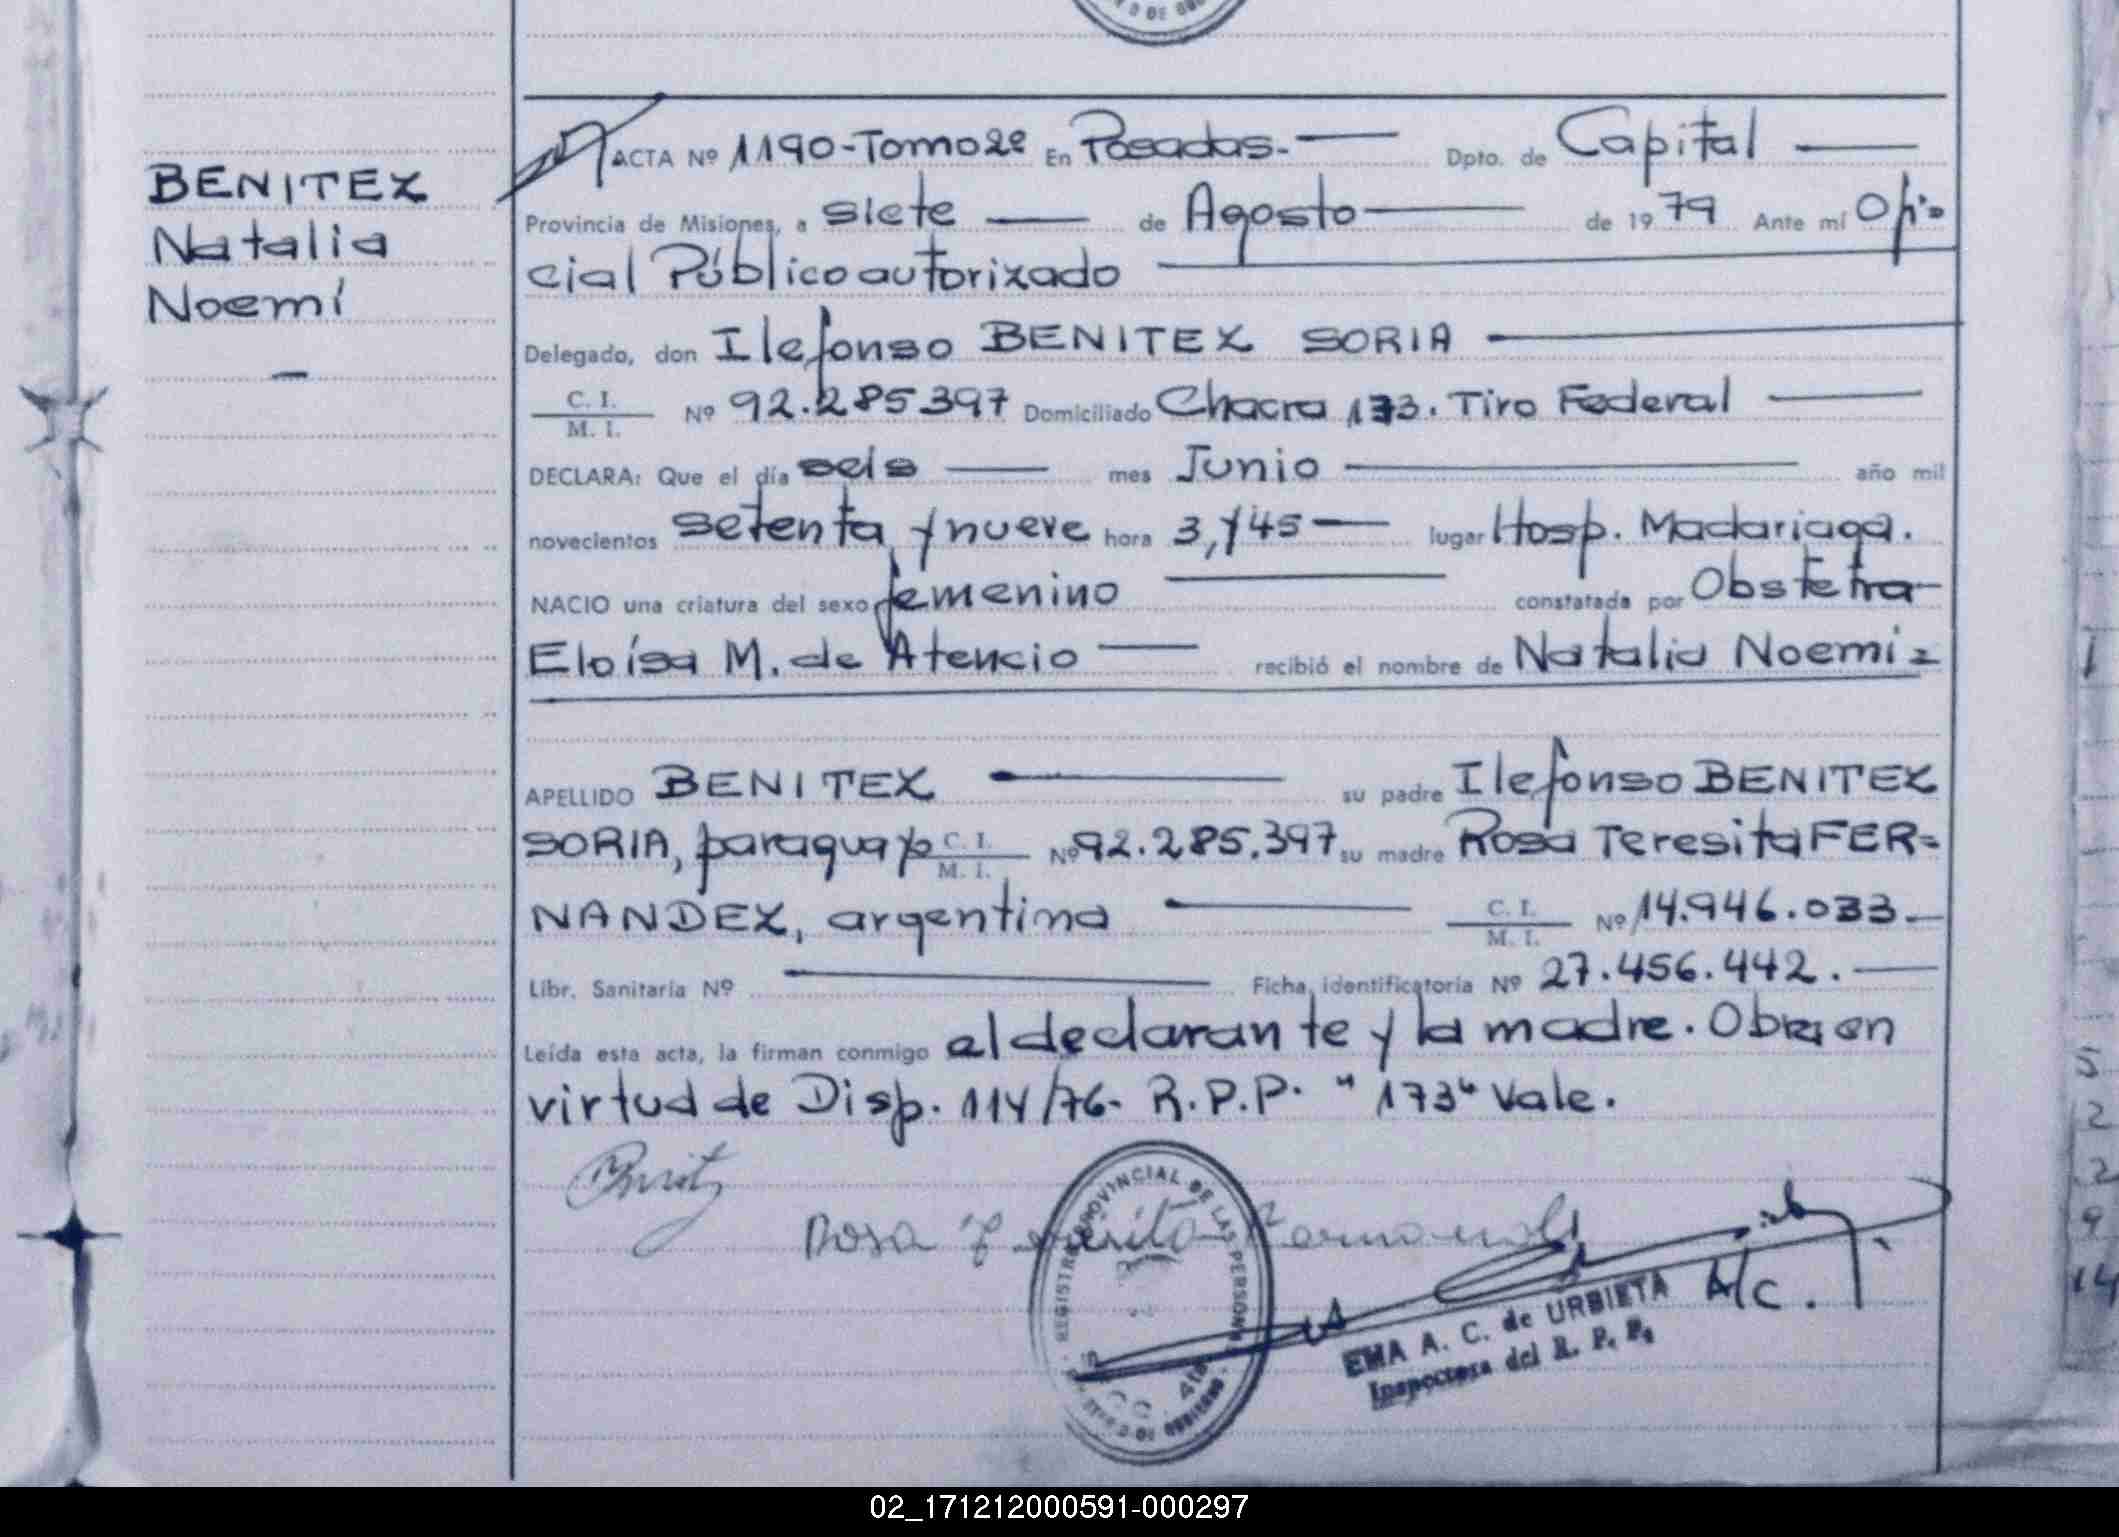 D DE
BENITEZ
Natalia
Noemí
ACTA Nº 1190-Tomo 2º En Posadas.- Dpto. de Capital
Provincia de Misiones, a siete de Agosto de 1979 Ante mí Ofi=
cial Público autorizado
Delegado, don Ilefonso BENITEZ SORIA
C. I.
M. I. Nº 92.285.397 Domiciliado Chacra 173. Tiro Federal
DECLARA: Que el día seis mes Junio año mil
novecientos setenta y nueve hora 3,y45 lugar Hosp. Madariaga.
NACIO una criatura del sexo femenino constatada por Obstetra
Eloísa M. de Atencio recibió el nombre de Natalia Noemi=
APELLIDO BENITEZ su padre Ilefonso BENITEZ
SORIA, paraguayo C. I. M. I. Nº 92.285.397 su madre Rosa Teresita FER=
NANDEZ, argentina C. I. M. I. Nº 14.946.033
Libr. Sanitaria Nº Ficha identificatoria Nº 27.456.442.
Leída esta acta, la firman conmigo el declarante y la madre. Obra en
virtud de Disp. 114/76- R.P.P. "173" Vale.
Benitz
Rosa Teresita Fernandez
REGISTRO PROVINCIAL DE LAS PERSONAS
A/C.
EMA A. C. de URBIETA
Inspectora del R. P. P.
5
2
2
9
14
02_171212000591-000297